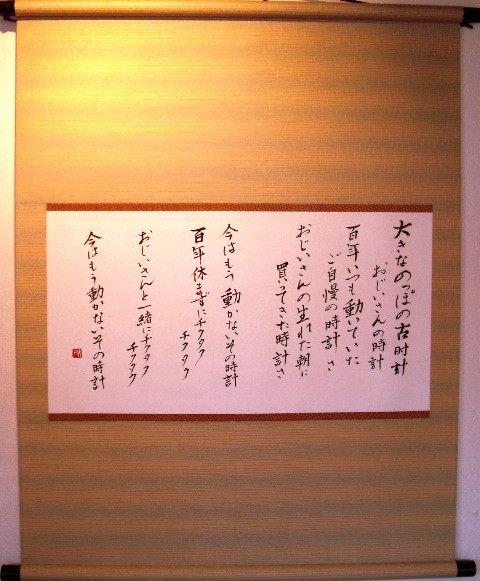 大きなのっぽの古時計
おじいさんの時計
百年いつも動いていた
ご自慢の時計さ
おじいさんの生れた朝に
買ってきた時計さ
今はもう動かないその時計
百年休まずにチクタク
チクタク
おじいさんと一緒にチクタク
チクタク
今はもう動かないその時計